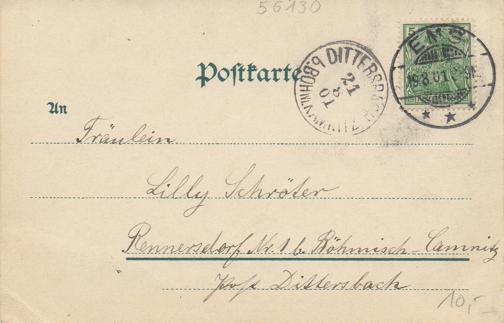 56130
Postkarte
DITTERSBACH b. BÖHM.
21
8
01
EMS
19.8.01
5
An
Fräulein
Lilly Schröter
Rennersdorf Nr. 1 b. Böhmisch-Camnitz
Post Dittersbach
10,-